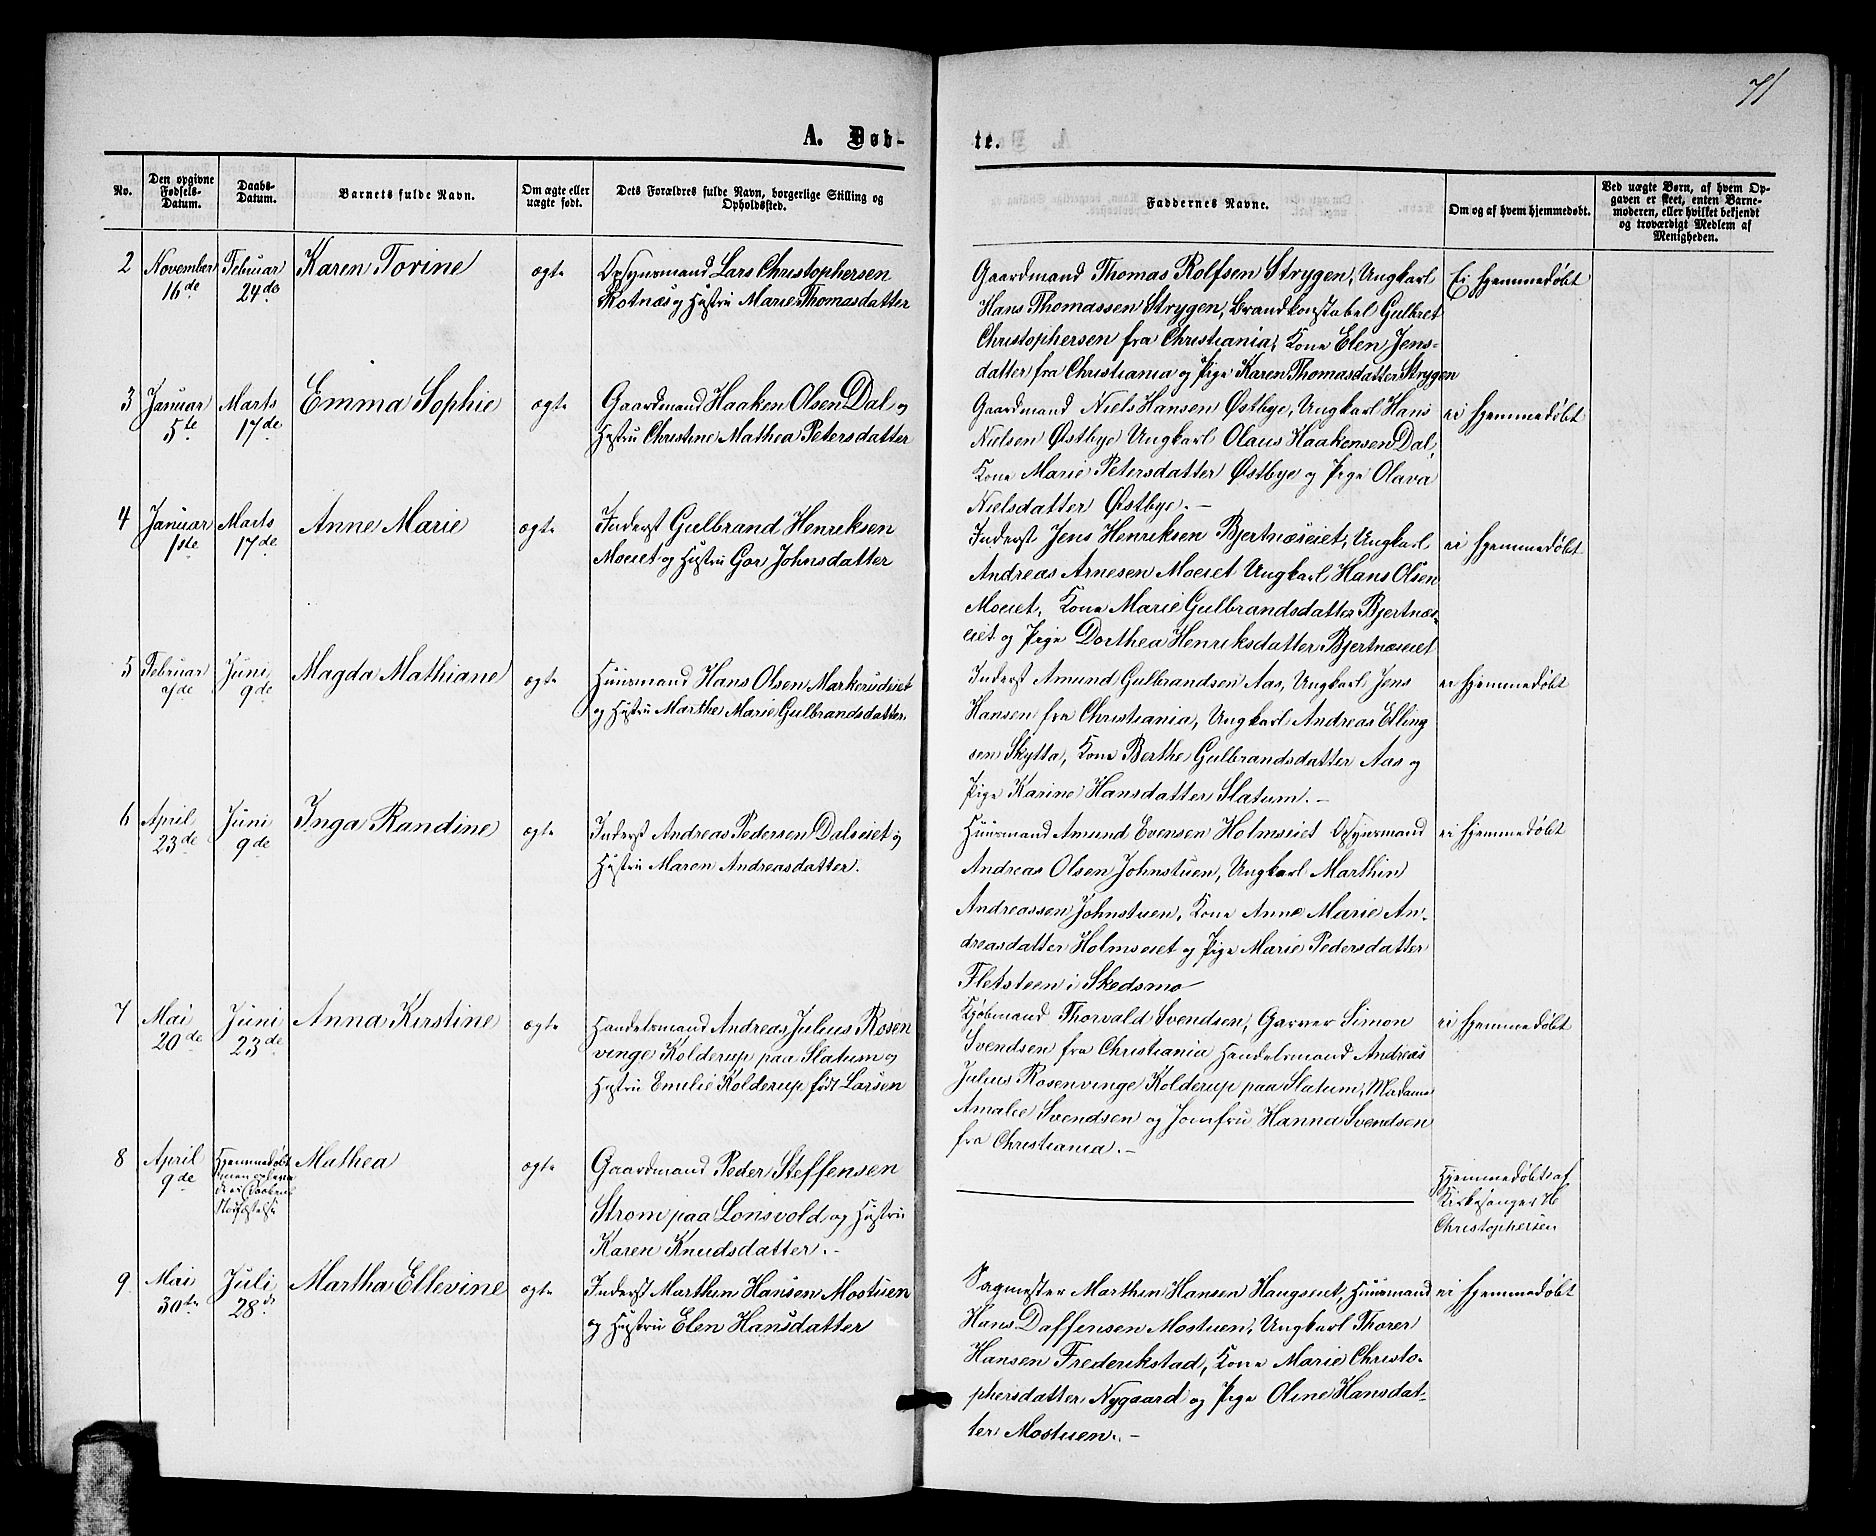 71
A. Døb-
te.
No.
Den opgivne Fødsels-Datum.
Daabs-Datum.
Barnets fulde Navn.
Om ægte eller uægte født.
Dets Forældres fulde Navn, borgerlige Stilling og Opholdssted.
Faddernes Navne.
Om og af hvem hjemmedøbt.
Ved uægte Børn, af hvem Opgaven er skeet, enten Barnemoderen, eller hvilket bekjendt og troværdigt Medlem af Menigheden.
2
November 16de
Februar 24de
Karen Torine
ægte
Opsynsmand Lars Christophersen
Rotnæs og Hustru Marie Thomasdatter
Gaardmand Thomas Rolfsen Strygen, Ungkarl
Hans Thomassen Strygen, Brandkonstabel Gulbret
Christophersen fra Christiania, Kone Elen Jens-
datter fra Christiania og Pige Karen Thomasdatter Strygen
Ei hjemmedøbt
3
Januar 5te
Marts 17de
Emma Sophie
ægte
Gaardmand Haaken Olsen Dal og
Hustru Christine Mathea Petersdatter
Gaardmand Niels Hansen Østbye, Ungkarl Hans
Nielsen Østbye Ungkarl Olaus Haakensen Dal,
Kone Marie Petersdatter Østbye og Pige Olava
Nielsdatter Østbye. -
ei hjemmedøbt
4
Januar 1ste
Marts 17de
Anne Marie
ægte
Inderst Gulbrand Henriksen
Moeiet og Hustru Gor Johnsdatter
Inderst Jens Henriksen Bjertnæseiet, Ungkarl
Andreas Arnesen Moeiet Ungkarl Hans Olsen
Moeiet, Kone Marie Gulbrandsdatter Bjertnæs-
eiet og Pige Dorthea Henriksdatter Bjertnæseiet
ei hjemmedøbt
5
Februar 7de
Juni 9de
Magda Mathiane
ægte
Huusmand Hans Olsen Markerudeiet
og Hustru Marthe Marie Gulbrandsdatter.
Inderst Amund Gulbrandsen Aas, Ungkarl Jens
Hansen fra Christiania, Ungkarl Andreas Elling
sen Skytta, Kone Berthe Gulbrandsdatter Aas og
Pige Karine Hansdatter Slatum. -
ei hjemmedøbt
6
April 23de
Juni 9de
Inga Randine
ægte
Inderst Andreas Pedersen Dalseiet og
Hustru Maren Andreasdatter.
Huusmand Amund Evensen Holmseiet Opsynsmand
Andreas Olsen Johnstuen, Ungkarl Marthin
Andreassen Johnstuen, Kone Anne Marie An-
dreasdatter Holmseiet og Pige Marie Pedersdatter
Fletsteen i Skedsmo
ei hjemmedøbt
7
Mai 20de
Juni 23de
Anna Kirstine
ægte
Handelsmand Andreas Julius Rosen
vinge Kolderup paa Slatum og
Hustru Emilie Kolderup født Larsen
Kjøbmand Thorvald Svendsen, Garver Simon
Svendsen fra Christiania Handelsmand Andreas
Julius Rosenvinge Kolderup paa Slatum, Madame
Amalie Svendsen og Jomfru Hanna Svendsen
fra Christiania. -
ei hjemmedøbt
8
April 9de
Hjemmedøbt
Mathea
ægte
Gaardmand Peder Steffensen
Strøm paa Lonsvold og Hustru
Karen Knudsdatter. -
Hjemmedøbt af
Kirkesanger H
Christophersen
9
Mai 30te
Juli 28de
Martha Ellevine
ægte
Inderst Marthin Hansen Mostuen
og Hustru Elen Hansdatter
Sagmester Marthin Hansen Haugseiet, Huusmand
Hans Daffensen Mostuen, Ungkarl Thorer
Hansen Frederikstad, Kone Marie Christo-
phersdatter Nygaard og Pige Oline Hansdat-
ter Mostuen. -
ei hjemmedøbt